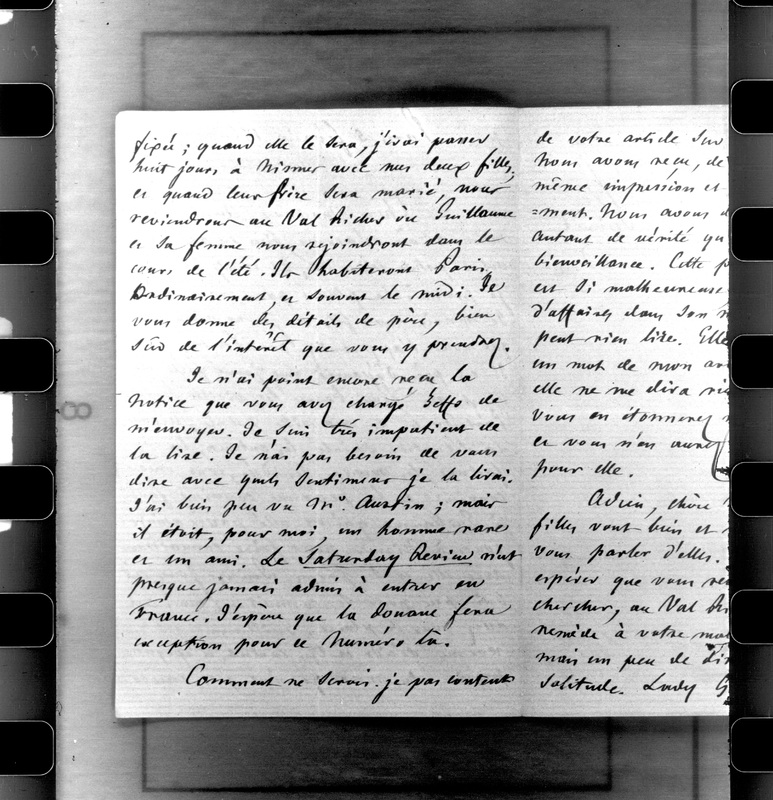 fixée ; quand elle le sera, j'irai passer
huit jours à Nismes avec mes deux filles,
et quand leur frère sera marié, nous
reviendrons au Val Richer où Guillaume
et sa femme nous rejoindront dans le
cours de l'été. Ils habiteront Paris
ordinairement, et souvent le midi. Je
vous donne des détails de père, bien
sûr de l'intérêt que vous y prendrez.
Je n'ai point encore reçu la
notice que vous avez chargé Zeffs de
m'envoyer. Je suis très impatient de
la lire. Je n'ai pas besoin de vous
dire avec quels sentimens je la lirai.
J'ai bien peu vu Mr. Austin ; mais
il étoit, pour moi, un homme rare
et un ami. Le Saturday Review n'est
presque jamais admis à entrer en
France. J'espère que la douane fera
exception pour ce numéro là.
Comment ne serois-je pas content
de votre article sur
Nous avons reçu, de
même impression et
=ment. Nous avons
autant de vérité qu
bienveillance. Cette p
est si malheureuse
d'affaires dans son
peut rien lire. Elle
un mot de mon
elle ne me dira
vous en étonnerez
et vous n'en aurez
pour elle.
Adieu, chère
filles vont bien et
vous parler d'elles.
espérer que vous
chercher, au Val Ri
remède à votre
mais un peu de
solitude. Lady G
8